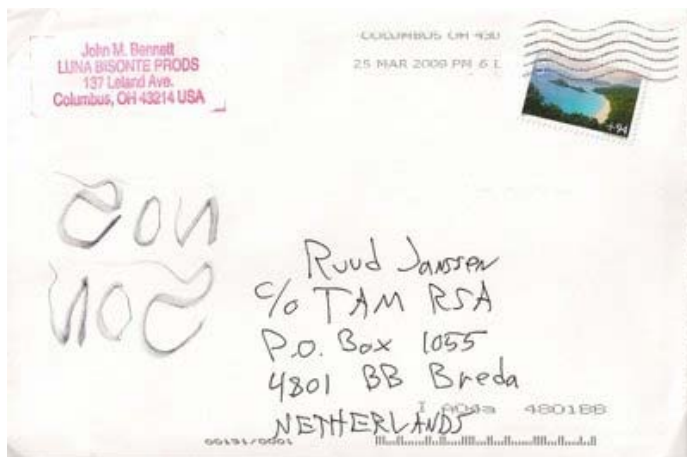 John M. Bennett
LUNA BISONTE PRODS
137 Leland Ave.
Columbus, OH 43214 USA
COLUMBUS OH 430
25 MAR 2009 PM 6 L
+94
Ruud Janssen
c/o TAM RSA
P.O. Box 1055
4801 BB Breda
NETHERLANDS
4801BB
00131/0001